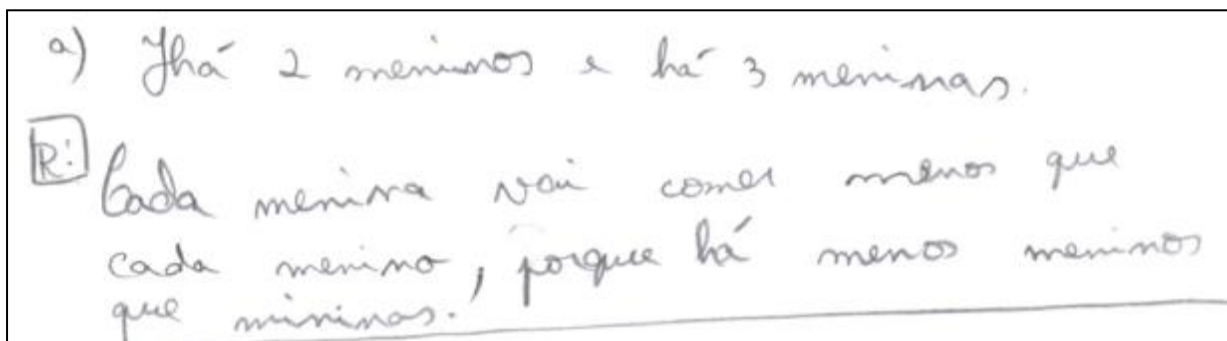 a) Há 2 meninos e há 3 meninas.
R: Cada menina vai comer menos que
cada menino, porque há menos meninos
que mininas.